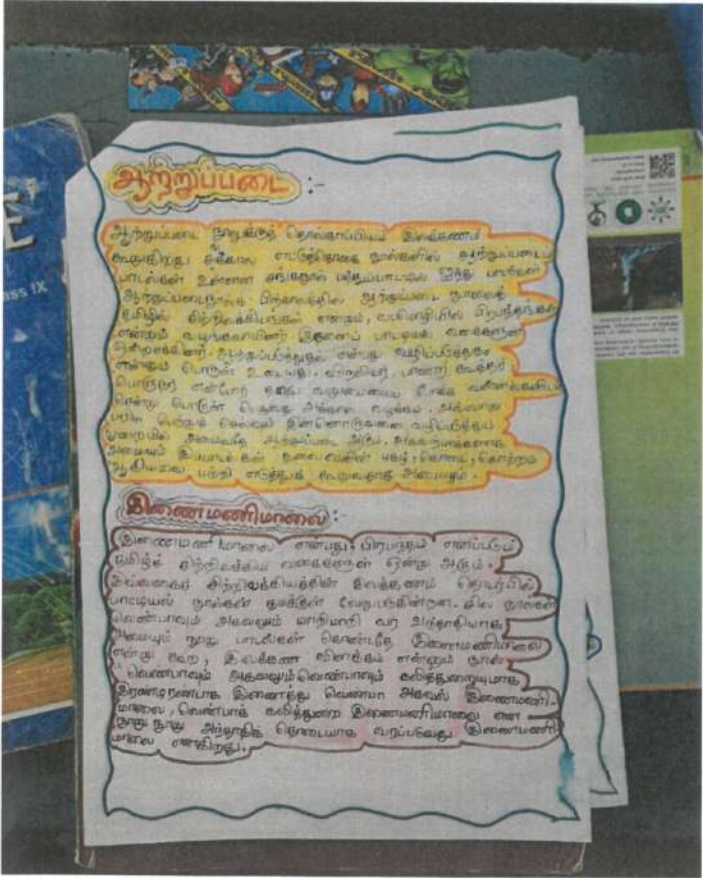 ஆற்றுப்படை :-
ஆற்றுப்படை நூலுக்குத் தொல்காப்பியம் இலக்கணம்
கூறுகிறது சங்ககால எட்டுத்தொகை நூல்களில் ஆற்றுப்படைப்
பாடல்கள் உள்ளன சங்கநூல் பத்துப்பாட்டில் ஐந்து பாடல்கள்
ஆற்றுப்படைநூல்கள் பிற்காலத்தில் ஆற்றுப்படை நூலைத்
தமிழில் சிற்றிலக்கியங்கள் எனவும், வடமொழியில் பிரபந்தங்கள்
என்னும் வழங்கலாயினர் இதனைப் பாட்டியல் வகைகளுள்
ஒன்றாக்கினர். ஆற்றுப்படுத்துதல் என்பது வழிப்படுத்துதல்
என்னும் பொருள் உடையது. விறலியர், பாணர், கூத்தர்,
பொருநர் என்போர் தமது வறுமையைப் போக்க வள்ளல்களிடம்
சென்று பொருள் பெறுவது அக்கால வழக்கம். அவ்வாறு
பரிசு பெற்றுச் செல்வர் இன்னொருவரை வழிப்படுத்தும்
முறையில் அமைவதே ஆற்றுப்படை ஆகும்.
அமையும் இப்பாடல்கள் தலைவனின் புகழ், கொடை, கொற்றம்
ஆகியவை பற்றி எடுத்துக் கூறுவதாக அமையும்.
இணைமணிமாலை :-
இணைமணி மாலை என்பது, பிரபந்தம் எனப்படும்
தமிழ்ச் சிற்றிலக்கிய வகைகளுள் ஒன்று ஆகும்.
இவ்வகைச் சிற்றிலக்கியத்தின் இலக்கணம் தொடர்பில்
பாட்டியல் நூல்கள் தமக்குள் வேறுபடுகின்றன. சில நூல்கள்
வெண்பாவும் அகவலும் மாறிமாறி வர அந்தாதியாக
அமையும் நூறு பாடல்கள் கொண்டதே இணைமணிமாலை
என்று கூற, இலக்கண விளக்கம் என்னும் நூல்
"வெண்பாவும் அகவலும் வெண்பாவும் கலித்துறையுமாக
இரண்டிரண்டாக இணைத்து வெண்பா அகவல் இணைமணி-
மாலை, வெண்பாக் கலித்துறை இணைமணிமாலை என
நூறு நூறு அந்தாதித் தொடையாக வரப்பாடுவது இணைமணி
மாலை என்கிறது.
ass IX